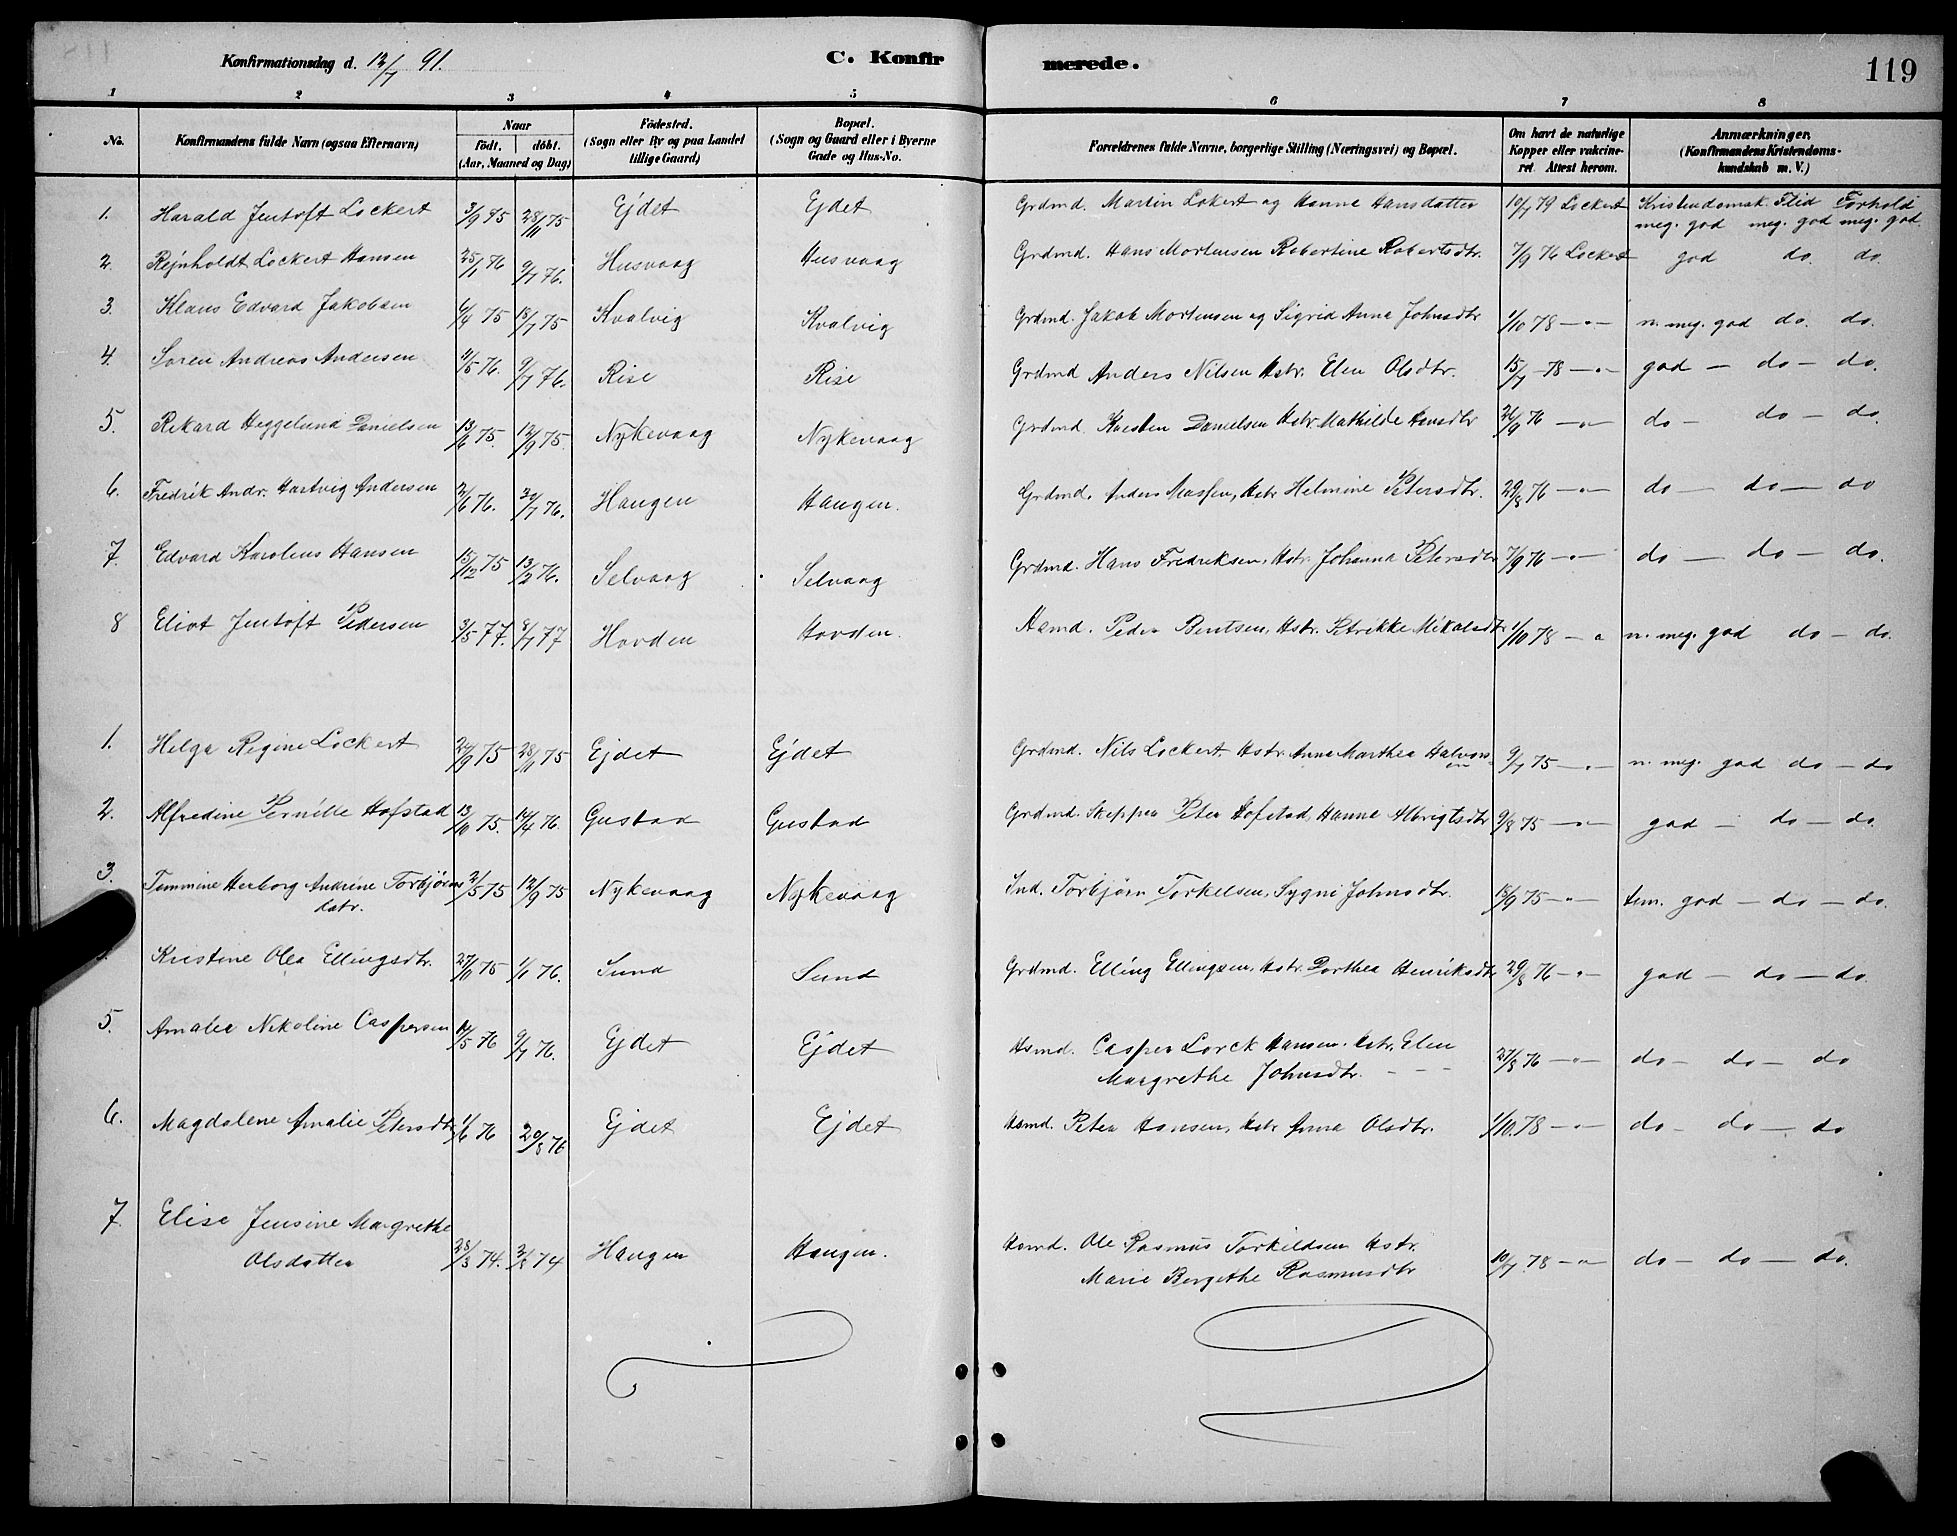 Konfirmationsdag d. 12/7 91.
C. Konfirmerede.
119
1 2 3 4 5 6 7 8
No.
Konfirmandens fulde Navn (ogsaa Efternavn)
Naar
födt. döbt.
(Aar, Maaned og Dag)
Födested.
(Sogn eller By og paa Landet
tillige Gaard)
Bopæl.
(Sogn og Gaard eller i Byerne
Gade og Hus-No.
Forældrenes fulde Navne, borgerlige Stilling (Næringsvei) og Bopæl.
Om havt de naturlige
Kopper eller vakcine-
ret. Attest herom.
Anmærkninger.
(Konfirmandens Kristendoms-
kundskab m. V.)
Kristendomsk. Flid Forhold
1. Harald Jentoft Lockert 3/9 75 28/11 75 Ejdet Ejdet Grdmd. Martin Lokert og Hanna Hansdatter 10/7 79 Lockert meg. god meg. god meg. god.
2. Rejnholdt Lockert Hansen 25/1 76 9/7 76. Husvaag Husvaag Grdmd. Hans Mortensen Robertine Robertsdtr. 7/9 76 Lockert god do. do.
3. Klaus Edvard Jakobsen 6/4 75 18/7 75 Kvalvig Kvalvig Grdmd. Jakob Mortensen og Sigrid Anna Johnsdtr 1/10 78 —"— n. meg. god do. do.
4. Søren Andreas Andersen 11/5 76. 9/7 76. Rise Rise Grdmd Anders Nilsen Hstr. Elen Olsdtr. 15/7 78 —"— god — do — do.
5. Rikard Heggelund Danielsen 13/6 75. 12/9 75. Nykevaag Nykevaag Grdmd. Karsten Danielsen Hstr. Mathilde Hansdtr 26/9 76 —"— do — do — do.
6. Fredrik Andr. Hartvig Andersen 2/6 76. 30/7 76. Haugen Haugen. Grdmd. Anders Massen, Hstr Helmine Petersdtr. 29/8 76 —"— do — do — do
7. Edvard Karolius Hansen 15/12 75 13/2 76. Selvaag Selvaag Grdmd. Hans Fredriksen, Hstr. Johanna Petersdtr 7/9 76 —"— do — do — do.
8 Eliot Jentoft Pedersen 3/5 77. 8/7 77 Hovden Hovden. Hsmd. Peder Bentsen, Hstr. Petrikke Mikalsdtr 1/10 78 —" n. meg. god do — do.
1. Helga Regine Lockert 24/9 75 28/11 75 Ejdet Ejdet Grdmd. Nils Lockert. Hstr. Anna Marthea Halvors- 9/7 75 —"— n. meg. god do — do
2. Alfredine Pernille Hofstad 13/10 75. 14/4 76. Gustad Gustad Grdmd. Skipper Peter Hofstad, Hanna Albrigtsdtr 9/8 75 —"— god — do — do.
3. Tommine Herborg Andrine Torbjørns
datr. 21/5 75 12/9 75 Nykevaag Nykevaag Ind. Torbjørn Torkelsen, Sygni Johnsdtr. 15/9 75 —"— tem. god — do — do.
Kristine Olea Ellingsdtr. 27/10 75 1/1 76. Sund Sund Grdmd. Elling Ellingsen, Hstr. Dorthea Henriksdtr 29/8 76 —"— god — do — do.
5. Amalie Nikoline Caspersen 14/5 76 9/7 76. Ejdet Ejdet Hsmd. Casper Lorck Hansen. Hstr. Elen
Margrethe Johnsdtr. 27/8 76 —"— do — do — do
6. Magdalene Amalie Petersdtr 1/6 76 20/8 76 Ejdet Ejdet Hsmd. Peter Hansen, Hstr Anna Olsdtr. 1/10. 78 —"— do — do — do
7. Elise Jensine Margrethe
Olsdatter 28/3 74. 2/8 74 Haugen Haugen. Hsmd. Ole Rasmus Torkildsen Hstr.
Marie Bergithe Rasmusdtr 10/7 78 —"— do — do — do.